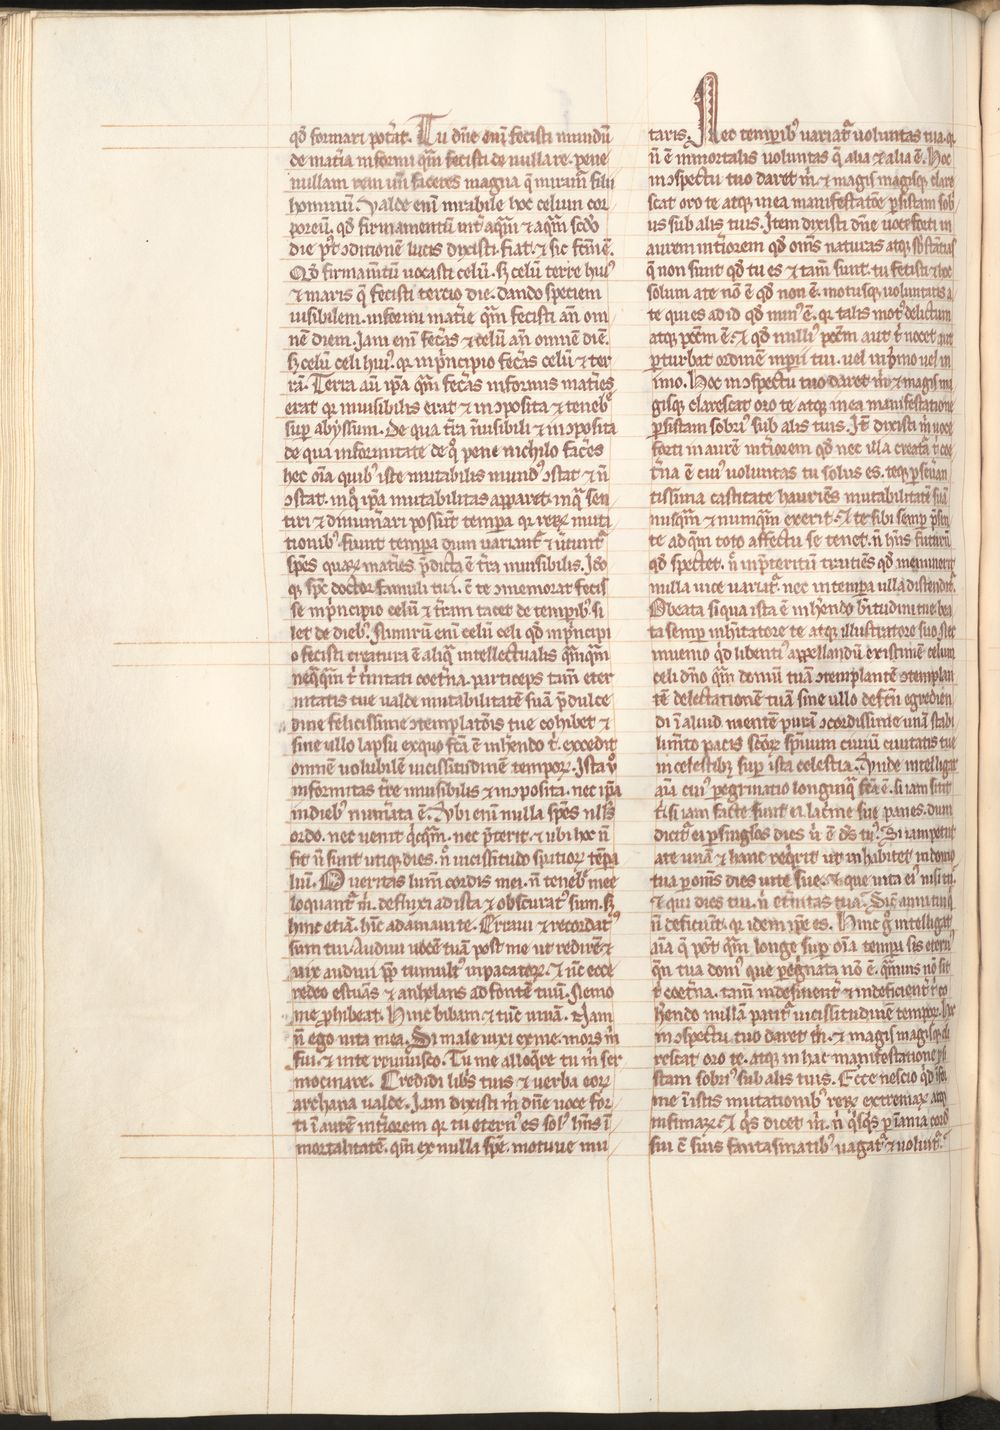 qđ formari pot̃at. Tu dñe eni fecisti mundũ
de mat̃ia informi quã fecisti de nulla re. pene
nullam rem un̄ faceres magna q̄ miram̃ filii
hominũ. Valde eni mirabile hoc celum cor
poreũ. qđ firmamentũ int̃ aquã & aquã scđo
die p̃t ɔditionē lucis dixisti. fiat. & sic fcm̄ ē.
Qđ firmam̃tũ uocasti celũ. sꝫ celũ terre huiꝰ
& maris q̄ fecisti tercio die. dando speciem
uisibilem. informi matie quã fecisti an̄ om
nē diem. Iam eni fec̃as & celũ an̄ omnē diē.
sꝫ celũ celi huiꝰ. qr inp̃ncipio fec̃as celũ & ter
rã. Terra aũ ip̃a quã fec̃as informis mat̃ies
erat qr inuisibilis erat & inɔposita & teneb̃
sup abyssum. De qua t̃ra iuisibili & inɔposita
de qua informitate de qͦ pene nichilo fac̃es
hec oĩa quibꝰ iste mutabilis mundꝰ ɔstat & ñ
ɔstat. in qͦ ip̃a mutabilitas apparet. in qͣ sen
tiri & dinum̃ari possũt tempa qr reꝝ muta
tionibꝰ fiunt tempa dum uariant̃ & ũtunt̃
sp̃es quaꝝ mat̃ies p̃dicta ē t̃ra inuisibilis. Iđo
qꝫ sp̃c doctor famuli tui. c̄ te ɔmemorat fecis
se inp̃ncipio celũ & t̃ram tacet de tempibꝰ. si
let de diebꝰ. Nimirũ eni celũ celi qđ inp̃ncipi
o fecisti creatura ē aliqͣ intellectualis qm̃qm̃
neqͣqm̃ t̃ t̃initati coet̃na. particeps tam̃ eter
nitatis tue ualde mutabilitatē suã p̃ dulce
dine felicissime ɔtemplatõis tue cohibet &
sine ullo lapsu ex quo fcã ē inh̃endo t̃. excedit
omnē uolubilē uicissitudinē tempoꝝ. Ista ũͦ
informitas t̃re inuisibilis & inɔposita. nec ip̃a
in diebꝰ num̃ata ē. Vbi eni nulla sp̃es nll̃s
ordo. nec uenit qͥcqm̃. nec p̃terit. & ubi hoc ñ
fit ñ sunt utiqꝫ dies. nͦ uicissitudo spatioꝝ tẽpa
liũ. O ueritas lum̃ cordis mei. ñ teneb̃ mee
loquant̃ m̃. defluxi ad ista & obscuratꝰ sum. sꝫ
hinc etiã. hĩc adamaui te. Erraui & recordatꝰ
sum tui. Audiui uocē tuã post me ut redirē &
uix audiui pp̃ tumultꝰ inpacatoꝝ. & ñc ecce
redeo estuãs & anhelans ad fontē tuũ. Nemo
me phibeat. Hinc bibam & tũc uiuã. Nam
ñ ego uita mea. Si male uixi ex me. mors m̃
fui. & in te reuiuisco. Tu me alloqͥre tu m̃ ser
mocinare. Credidi lib̃s tuis & uerba eoꝝ
archana ualde. Iam dixisti m̃ dñe uoce for
ti ĩ aurē int̃iorem qr tu eternꝰ es solꝰ hñs ĩ
mortalitatē. qm̃ ex nulla sp̃e. motuue mu
taris. Nec tempibꝰ uariat̃ uoluntas tua. qr
ñ ē inmortalis uoluntas q̄ alia & alia ē. Hoc
inɔspectu tuo claret m̃. & magis magisqꝫ clare
scat oro te atqꝫ in ea manifestatõe psistam sob̃i
us sub alis tuis. Item dixisti dñe uoce forti in
aurem int̃iorem qđ om̃s naturas atqꝫ sb̃stãtias
q̄ non sunt qđ tu es & tam̃ sunt. tu fecisti & hoc
solum a te nõ ē qđ non ē. motusqꝫ uoluntatis a
te qui es ad id qđ minꝰ ē. qr talis motꝰ delictum
atqꝫ pecc̃m ē. & qđ nulliꝰ pecc̃m aut t̃ nocet aut
pturbat ordinē inp̃ii tui. uel in p̃mo uel in
imo. Hoc inɔspectu tuo claret m̃ & magis ma
gisqꝫ clarescat oro te atqꝫ in ea manifestatione
psistam sobriꝰ sub alis tuis. It̃ dixisti m̃ uoce
forti in aurē int̃iorem qđ nec illa creat̃a t̃ coe
t̃na ē cuiꝰ uoluntas tu solus es. teqꝫ pseũan
tissima castitate hauriẽs mutabilitatē suã
nusquã & numquã exerit. & te sibi semp p̃sen
te ad quẽ toto affectu se tenet. ñ hñs futurũ
qđ spectet. nͦ in p̃teritũ traiciẽs qđ meminerit
nulla uice uariat̃. nec in tempa ulla distendit̃.
O beata siqua ista ē inh̃endo b̃titudini tue. bea
ta semp inh̃itatore te atqꝫ illustratore suo. Nec
inuenio qͥd libentiꝰ appellandũ existimē celum
celi dño quã domũ tuã ɔtemplantē ɔtemplan
tē delectationē tuã sine ullo defc̃u egredien
di ĩ aliud mentē purã ɔcordissime unã stabi
lim̃to pacis sc̃oꝝ sp̃uum ciuiũ ciuitatis tue
in celestibꝫ sup ista celestia. Vnde intelligat
aĩa cuiꝰ pegrinatio longinqͣ fc̃a ē. si iam sitit
t̃. si iam facte sunt ei lac̃me sue panes. dum
dicit̃ ei p singlos dies ũ ē đs tuꝰ. Si iam petiuit
a te unã & hanc req̃rit ut inhabitet in domo
tua p om̃s dies uite sue. & que uita eiꝰ nisi tu.
& qui dies tui. ñ et̃nitas tua. Sic̃ anni tui q̃
ñ deficiũt. qr idem ip̃e es. Hinc gͦ intelligat
aĩa q̄ pot̃ quã longe sup oĩa tempa sis eternꝰ
qñ tua domꝰ que pegnata nõ ē. quãuis nõ sit
t̃ coet̃na. tam̃ indesinent̃ & indeficient̃ t̃ co
h̃endo nullã patit̃ uicissitudinē tempoꝝ. Hoc
inɔspectu tuo claret m̃. & magis magisqꝫ cla
rescat oro te. atqꝫ in hac manifestatione psi
stam sobriꝰ sub alis tuis. Ecce nescio qͥd ĩfor
me ĩ istis mutationibꝰ reꝝ extremaꝝ atqꝫ
infimaꝝ. & qͥs dicet m̃. ñ qͥsqͥs p inania cord
sui c̄ suis fantasmatibꝰ uagat̃ & uoluit̃.